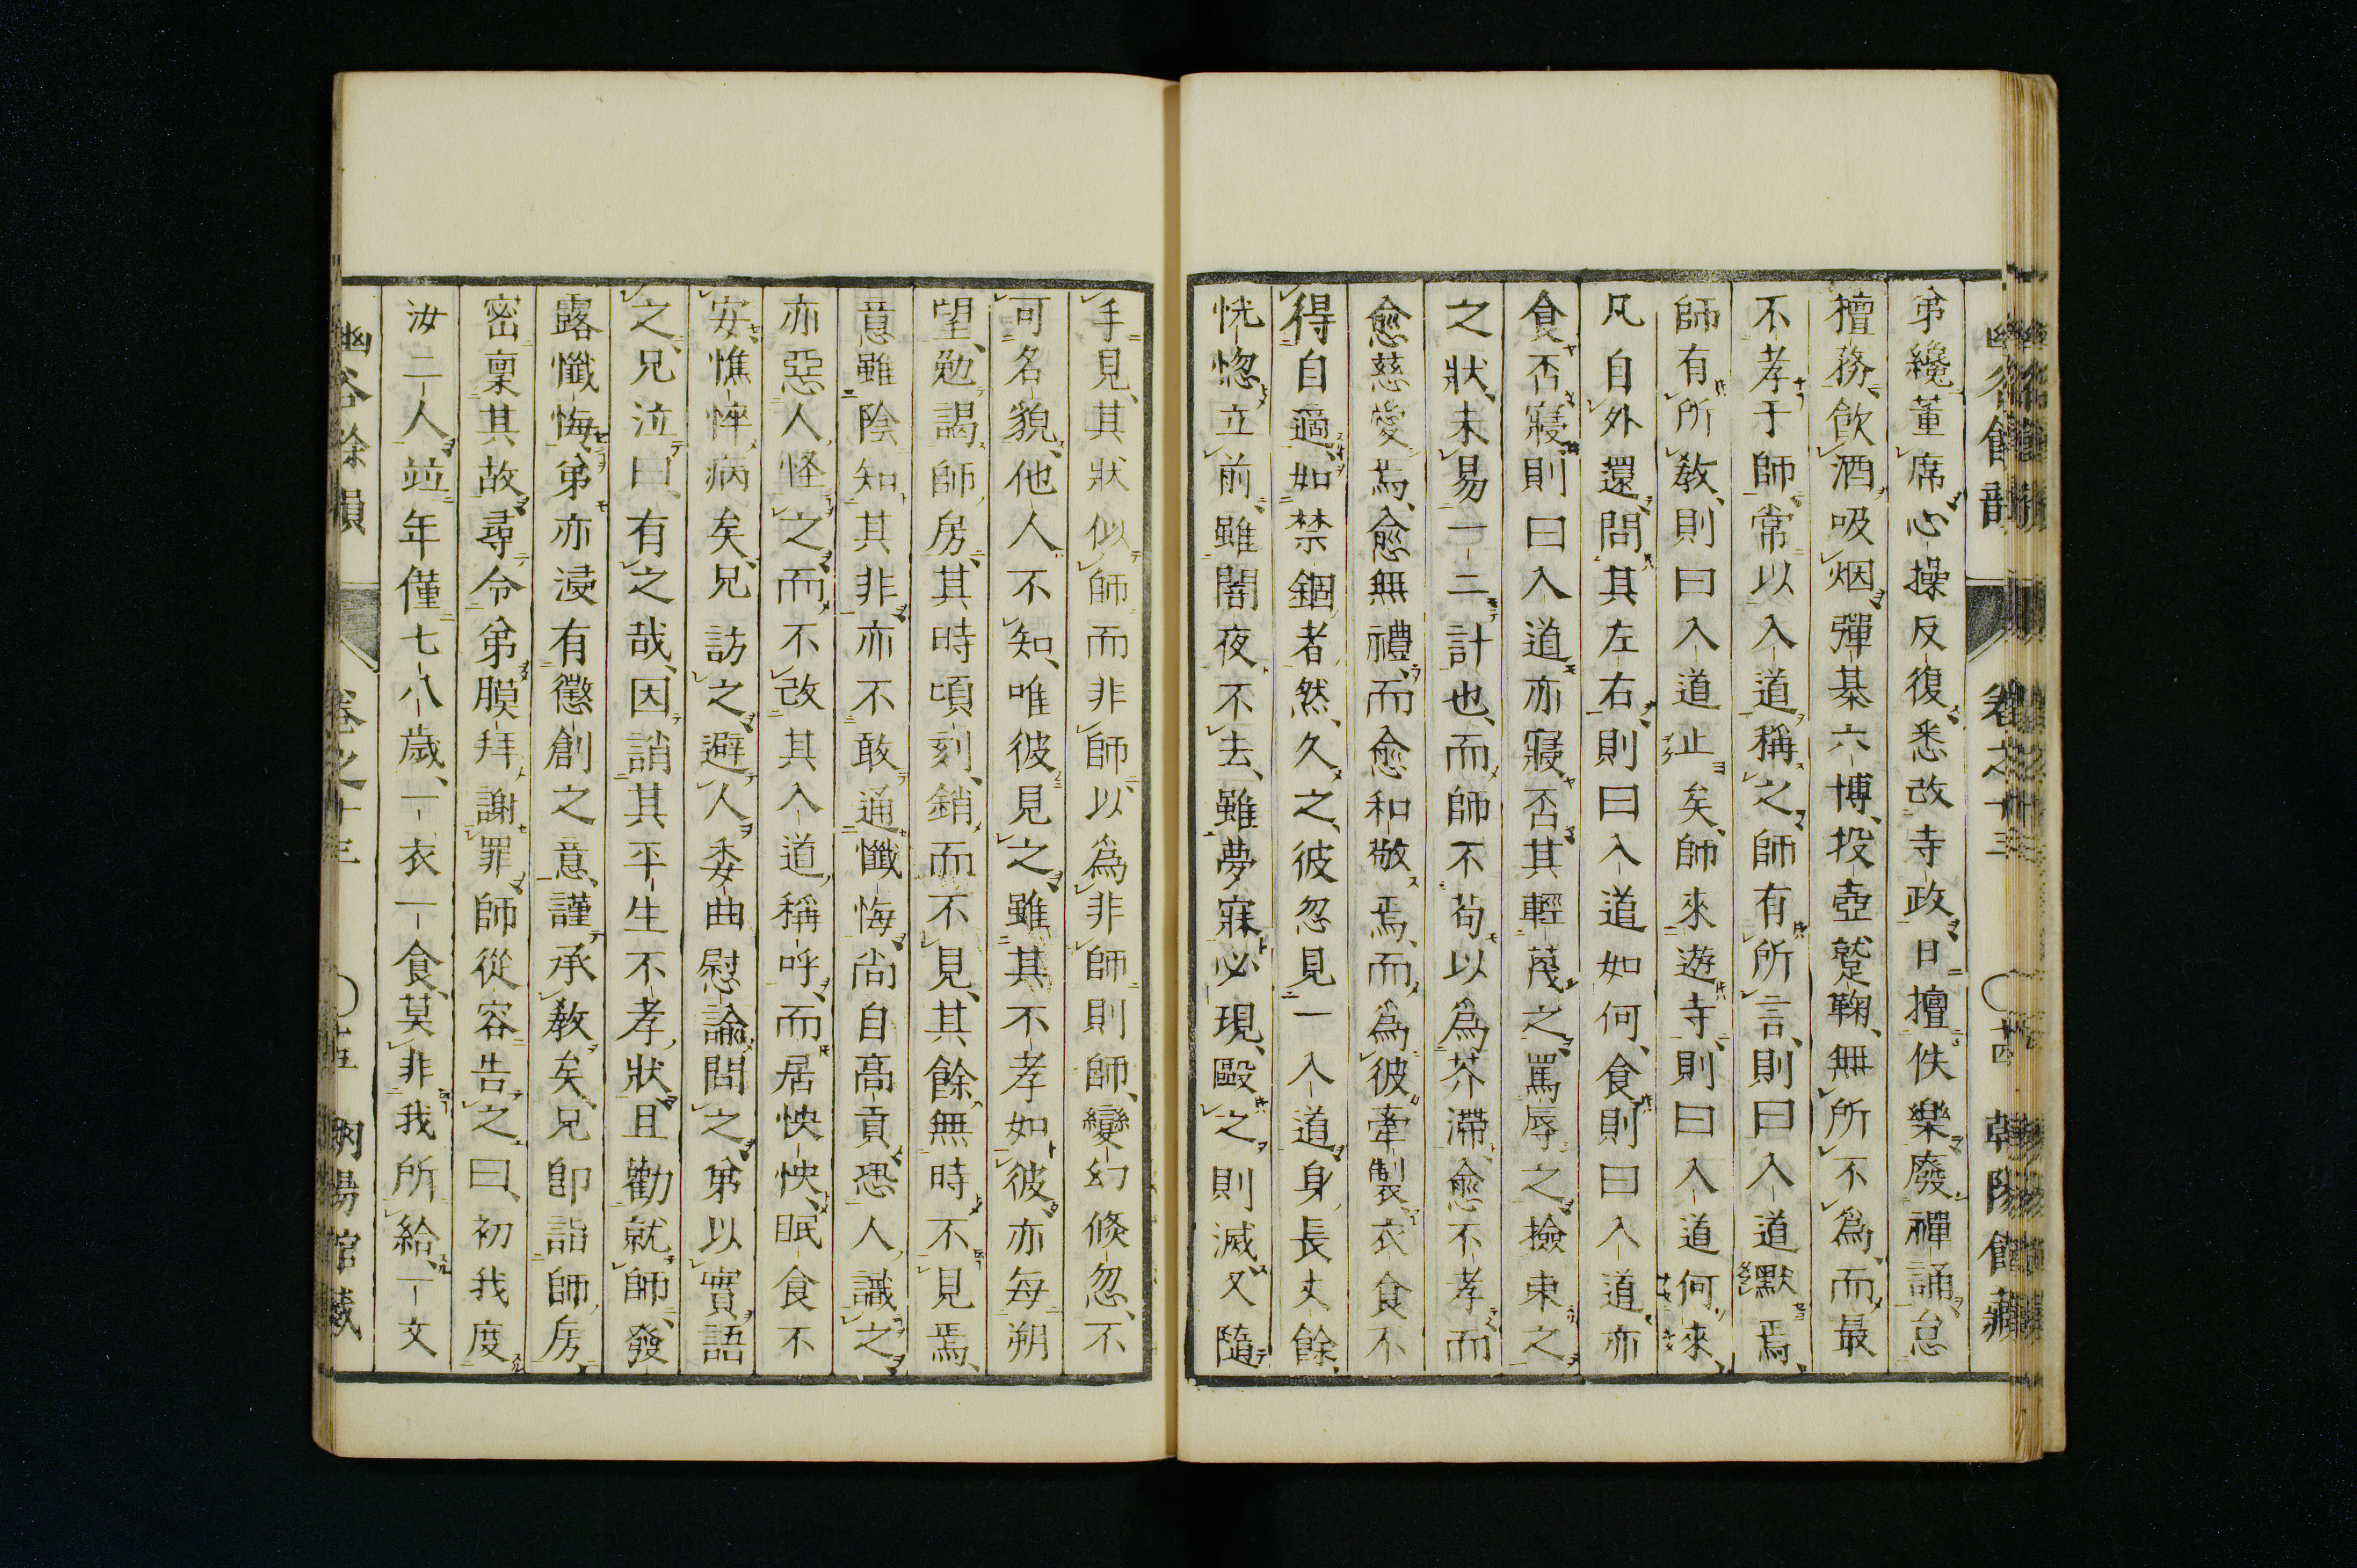 弟纔董席心操反復悉改寺政日擅佚樂廢禪誦怠
擅務飲酒吸烟彈棊六博投壺蹵鞠無所不爲而最
不孝于師常以入道稱之師有所言則曰入道默焉
師有所教則曰入道止矣師來遊寺則曰入道何來
凡自外還問其左右則曰入道如何食則曰入道亦
食否寢則曰入道亦寢否其輕蔑之罵辱之撿束之
之狀未易一二計也而師不苟以爲芥滯愈不孝而
愈慈愛焉愈無禮而愈和敬焉而爲彼牽製衣食不
得自適如禁錮者然久之彼忽見一入道身長丈餘
恍惚立前雖闇夜不去雖夢寐必現毆之則滅又隨
手見其狀似師而非師以爲非師則師變幻倐忽不
可名貌他人不知唯彼見之雖其不孝如彼亦每朔
望勉謁師房其時頃刻銷而不見其餘無時不見焉
意雖陰知其非亦不敢通懺悔尚自高貢恐人識之
亦惡人怪之而不改其入道稱呼而居怏怏眠食不
安憔悴病矣兄訪之避人委曲慰諭問之弟以實語
之兄泣曰有之哉因誚其平生不孝狀且勸就師發
露懺悔弟亦浸有懲創之意謹承教矣兄卽詣師房
密稟其故尋令弟膜拜謝罪師從容告之曰初我度
汝二人竝年僅七八歲一衣一食莫非我所給一文
幽谷餘韻 卷之十三 朝陽館藏